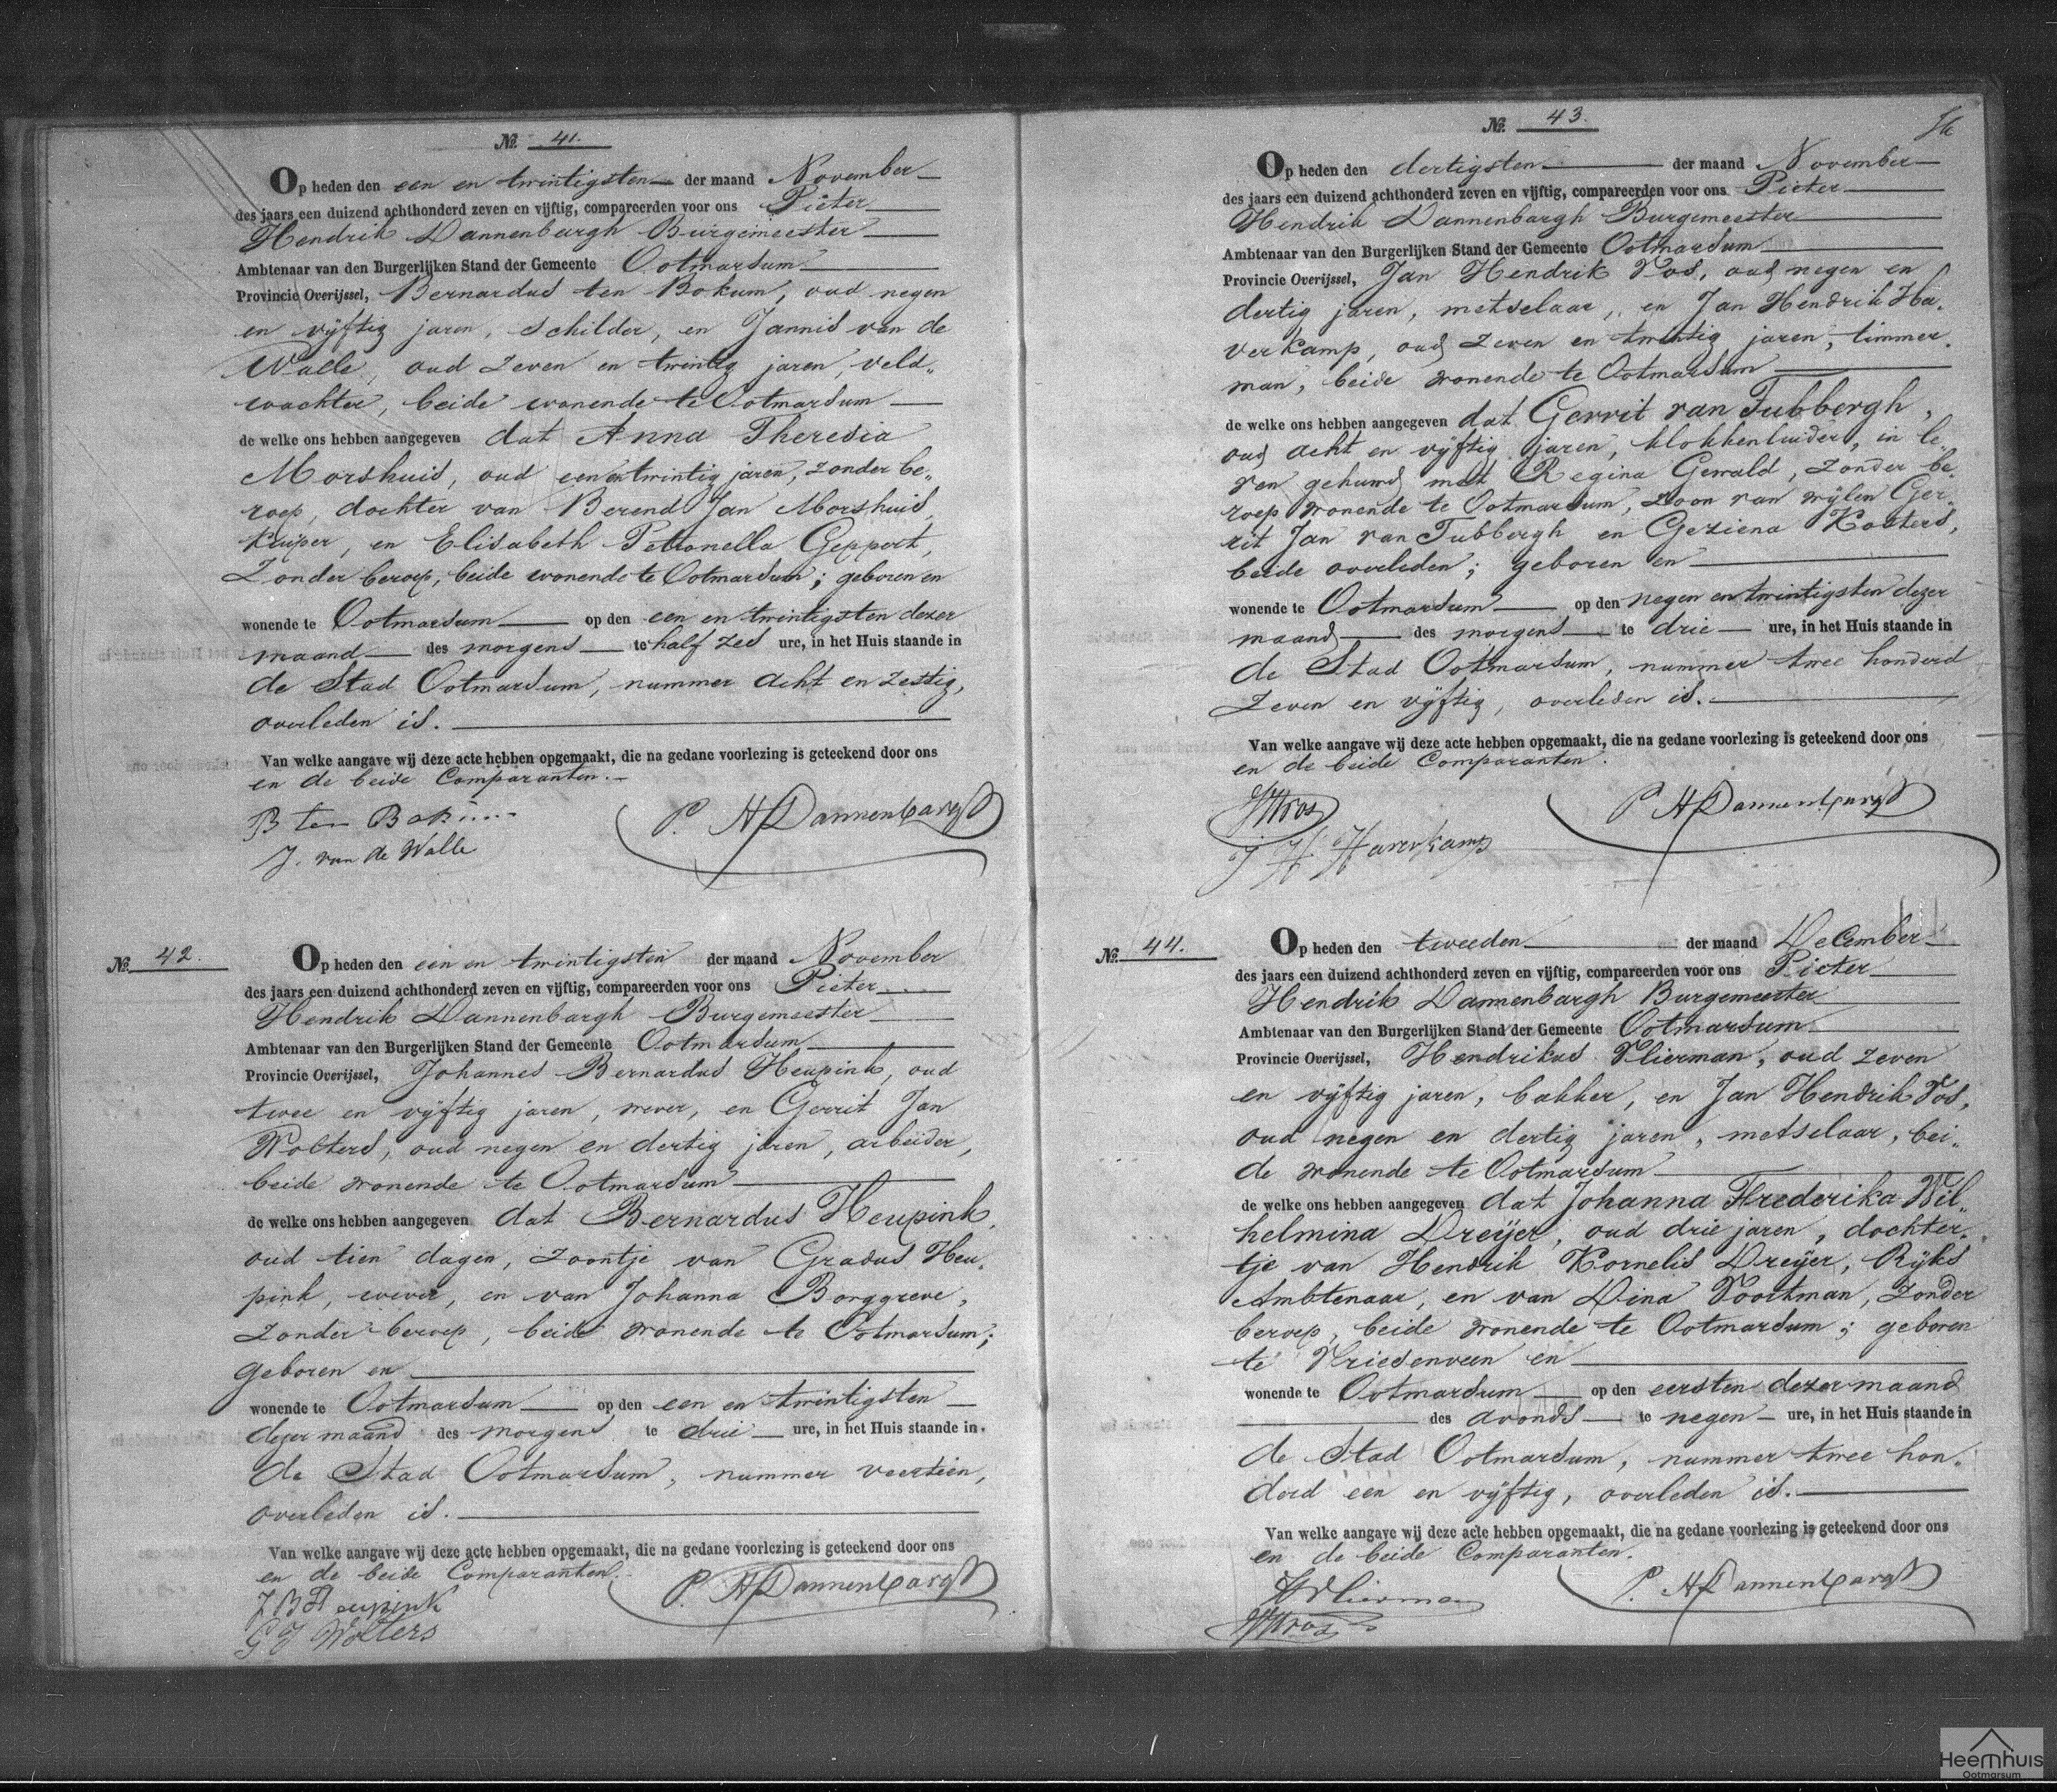 No. 41.
Op heden den een en twintigsten der maand November
des jaars een duizend achthonderd zeven en vijftig, compareerden voor ons Pieter
Hendrik Dannenbargh Burgemeester
Ambtenaar van den Burgerlijken Stand der Gemeente Ootmarsum
Provincie Overijssel, Bernardus ten Bokum, oud negen
en vijftig jaren, schilder, en Jannis van de
Walle, oud zeven en twintig jaren, veld„
wachter, beide wonende te Ootmarsum
de welke ons hebben aangegeven dat Anna Theresia
Morshuis, oud een en twintig jaren, zonder be„
roep, dochter van Berend Jan Morshuis,
kuiper, en Elisabeth Petronella Geppert,
zonder beroep, beide wonende te Ootmarsum; geboren en
wonende te Ootmarsum op den een en twintigsten dezer
maand des morgens te half zes ure, in het Huis staande in
de Stad Ootmarsum, nummer acht en zestig,
overleden is.
Van welke aangave wij deze acte hebben opgemaakt, die na gedane voorlezing is geteekend door ons
en de beide Comparanten.
B ten Bokum
P. H Dannenbargh
J. van de Walle
No. 42.
Op heden den een en twintigsten der maand November
des jaars een duizend achthonderd zeven en vijftig, compareerden voor ons Pieter
Hendrik Dannenbargh Burgemeester
Ambtenaar van den Burgerlijken Stand der Gemeente Ootmarsum
Provincie Overijssel, Johannes Bernardus Heupink, oud
twee en vijftig jaren, wever, en Gerrit Jan
Wolters, oud negen en dertig jaren, arbeider,
beide wonende te Ootmarsum
de welke ons hebben aangegeven dat Bernardus Heupink,
oud tien dagen, zoontje van Gradus Heu„
pink, wever, en van Johanna Borggreve,
zonder beroep, beide wonende te Ootmarsum;
geboren en
wonende te Ootmarsum op den een en twintigsten
dezer maand des morgens te drie ure, in het Huis staande in
de Stad Ootmarsum, nummer veertien,
overleden is.
Van welke aangave wij deze acte hebben opgemaakt, die na gedane voorlezing is geteekend door ons
en de beide Comparanten.
J B Heupink
P. H Dannenbargh
G J Wolters
No. 43.
Op heden den dertigsten der maand November
des jaars een duizend achthonderd zeven en vijftig, compareerden voor ons Pieter
Hendrik Dannenbargh Burgemeester
Ambtenaar van den Burgerlijken Stand der Gemeente Ootmarsum
Provincie Overijssel, Jan Hendrik Vos, oud negen en
dertig jaren, metselaar, en Jan Hendrik Ha„
verkamp, oud zeven en twintig jaren, timmer„
man, beide wonende te Ootmarsum
de welke ons hebben aangegeven dat Gerrit van Tubbergh,
oud acht en vijftig jaren, klokkenluider, in le„
ven gehuwd met Regina Gewald, zonder be„
roep wonende te Ootmarsum, zoon van wijlen Ger„
rit Jan van Tubbergh en Geziena Kosters,
beide overleden; geboren en
wonende te Ootmarsum op den negen en twintigsten dezer
maand des morgens te drie ure, in het Huis staande in
de Stad Ootmarsum, nummer twee honderd
zeven en vijftig, overleden is.
Van welke aangave wij deze acte hebben opgemaakt, die na gedane voorlezing is geteekend door ons
en de beide Comparanten.
JHVos
P. H Dannenbargh
J. H. Haverkamp
No. 44.
Op heden den tweeden der maand December
des jaars een duizend achthonderd zeven en vijftig, compareerden voor ons Pieter
Hendrik Dannenbargh Burgemeester
Ambtenaar van den Burgerlijken Stand der Gemeente Ootmarsum
Provincie Overijssel, Hendrikus Vlierman, oud zeven
en vijftig jaren, bakker, en Jan Hendrik Vos,
oud negen en dertig jaren, metselaar, bei„
de wonende te Ootmarsum
de welke ons hebben aangegeven dat Johanna Frederika Wil„
helmina Dreijer, oud drie jaren, dochter„
tje van Hendrik Kornelis Dreijer, Rijks
Ambtenaar, en van Dina Voortman, zonder
beroep, beide wonende te Ootmarsum; geboren
te Vriesenveen en
wonende te Ootmarsum op den eersten dezer maand
des avonds te negen ure, in het Huis staande in
de Stad Ootmarsum, nummer twee hon„
derd een en vijftig, overleden is.
Van welke aangave wij deze acte hebben opgemaakt, die na gedane voorlezing is geteekend door ons
en de beide Comparanten.
H Vlierman
P. H Dannenbargh
JHVos
Heemhuis
Ootmarsum